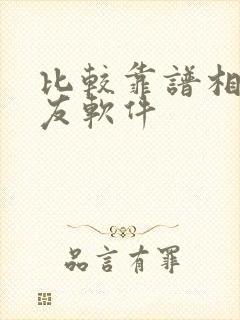 比較靠譜相
友軟件
品言有罪